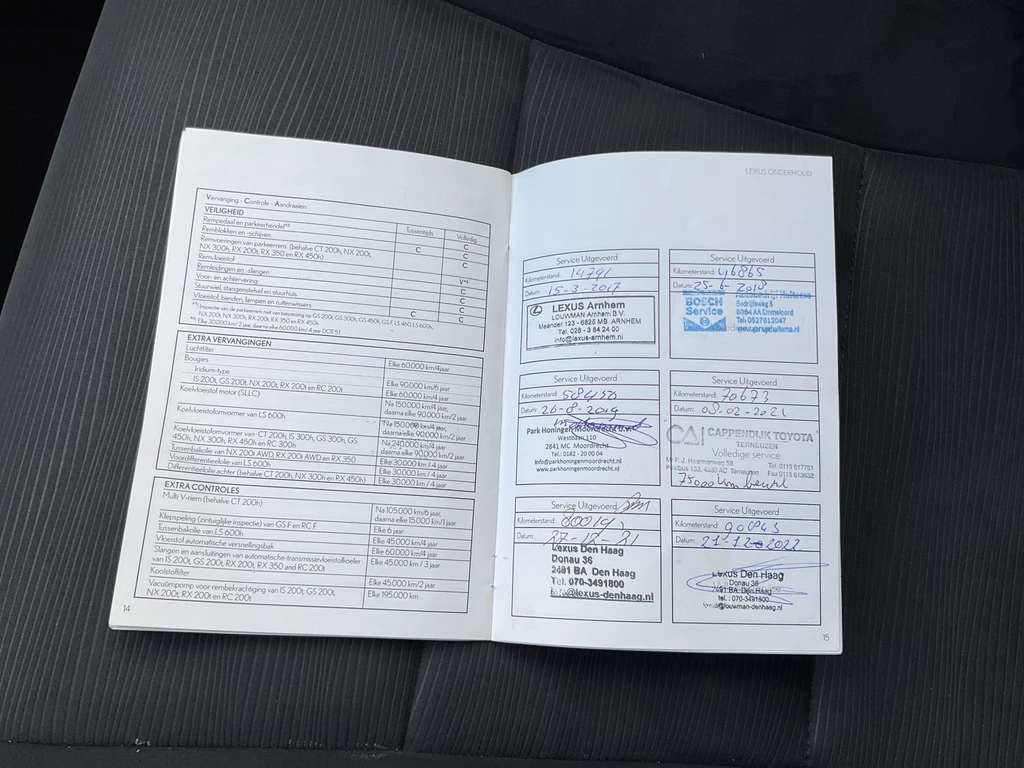 Vervanging - Controle - Aandraaien
VEILIGHEID
Tussentijds Volledig
Rempedaal en parkeerhendel*⁵ C
Remblokken en -schijven C C
Remvoeringen van parkeerrem (behalve CT 200h, NX 200t,
NX 300h, RX 200t, RX 350 en RX 450h) C
Remvloeistof
Remleidingen en -slangen V*⁶
Voor- en achtervering C
Stuurwiel, stangenstelsel en stuurhuis C
Vloeistof, banden, lampen en ruitenwissers C C
*⁵ Inspectie van de parkeerrem niet van toepassing op GS 200t, GS 300h, GS 450h, GS F, LS 460, LS 600h,
NX 200t, NX 300h, RX 200t, RX 350 en RX 450h
*⁶ Elke 30.000 km/2 jaar, daarna elke 60.000 km/4 jaar DOT 5.1
EXTRA VERVANGINGEN
Luchtfilter Elke 60.000 km/4 jaar
Bougies
Iridium-type Elke 90.000 km/6 jaar
IS 200t, GS 200t, NX 200t, RX 200t en RC 200t Elke 60.000 km/4 jaar
Koelvloeistof motor (SLLC) Na 150.000 km/4 jaar,
daarna elke 90.000 km/2 jaar
Koelvloeistofomvormer van LS 600h Na 150.000 km/4 jaar,
daarna elke 90.000 km/2 jaar
Koelvloeistofomvormer van CT 200h, IS 300h, GS 300h, GS
450h, NX 300h, RX 450h en RC 300h Na 240.000 km/4 jaar,
daarna elke 90.000 km/2 jaar
Tussenbakolie van NX 200t AWD, RX 200t AWD en RX 350 Elke 30.000 km / 4 jaar
Voordifferentieelolie van LS 600h Elke 30.000 km / 4 jaar
Differentieelolie achter (behalve CT 200h, NX 300h en RX 450h) Elke 30.000 km / 4 jaar
EXTRA CONTROLES
Multi V-riem (behalve CT 200h) Na 105.000 km/6 jaar,
daarna elke 15.000 km/1 jaar
Klepspeling (zintuiglijke inspectie) van GS F en RC F Elke 6 jaar
Tussenbakolie van LS 600h Elke 45.000 km/4 jaar
Vloeistof automatische versnellingsbak Elke 60.000 km/4 jaar
Slangen en aansluitingen van automatische-transmissievloeistofkoeler
van IS 200t, GS 200t, RX 200t, RX 350 and RC 200t Elke 45.000 km / 3 jaar
Koolstoffilter Elke 45.000 km/2 jaar
Vacuümpomp voor rembekrachtiging van IS 200t, GS 200t,
NX 200t, RX 200t en RC 200t Elke 195.000 km
14
LEXUS ONDERHOUD
Service Uitgevoerd
Kilometerstand: 14791
Datum: 15-3-2017
LEXUS Arnhem
LOUWMAN Arnhem B.V.
Meander 123 - 6825 MB ARNHEM
Tel. 026 - 3 84 24 00
info@lexus-arnhem.nl
Service Uitgevoerd
Kilometerstand: 46865
Datum: 25-6-2018
BOSCH
Service
Bedrijfsweg 5
8304 AA Emmeloord
Tel: 0527612047
Service Uitgevoerd
Kilometerstand: 58450
Datum: 26-8-2019
Park Honingen Moordrecht b.v.
Westbaan 110
2841 MC Moordrecht
Tel.: 0182 - 20 00 04
info@parkhoningenmoordrecht.nl
www.parkhoningenmoordrecht.nl
Service Uitgevoerd
Kilometerstand: 70673
Datum: 08-02-2021
CAPPENDIJK TOYOTA
TERNEUZEN
Volledige service
Mr F.J. Haarmanweg 58 Tel. 0115 617751
Postbus 133, 4530 AC Terneuzen Fax 0115 613632
75000 km beurt
Service Uitgevoerd
Kilometerstand: 80019
Datum: 27-12-21
Lexus Den Haag
Donau 36
2491 BA Den Haag
Tel. 070-3491800
@lexus-denhaag.nl
Service Uitgevoerd
Kilometerstand: 90043
Datum: 21-12-2022
Lexus Den Haag
Donau 36
2491 BA Den Haag
tel. : 070-3491800
@louwman-denhaag.nl
15